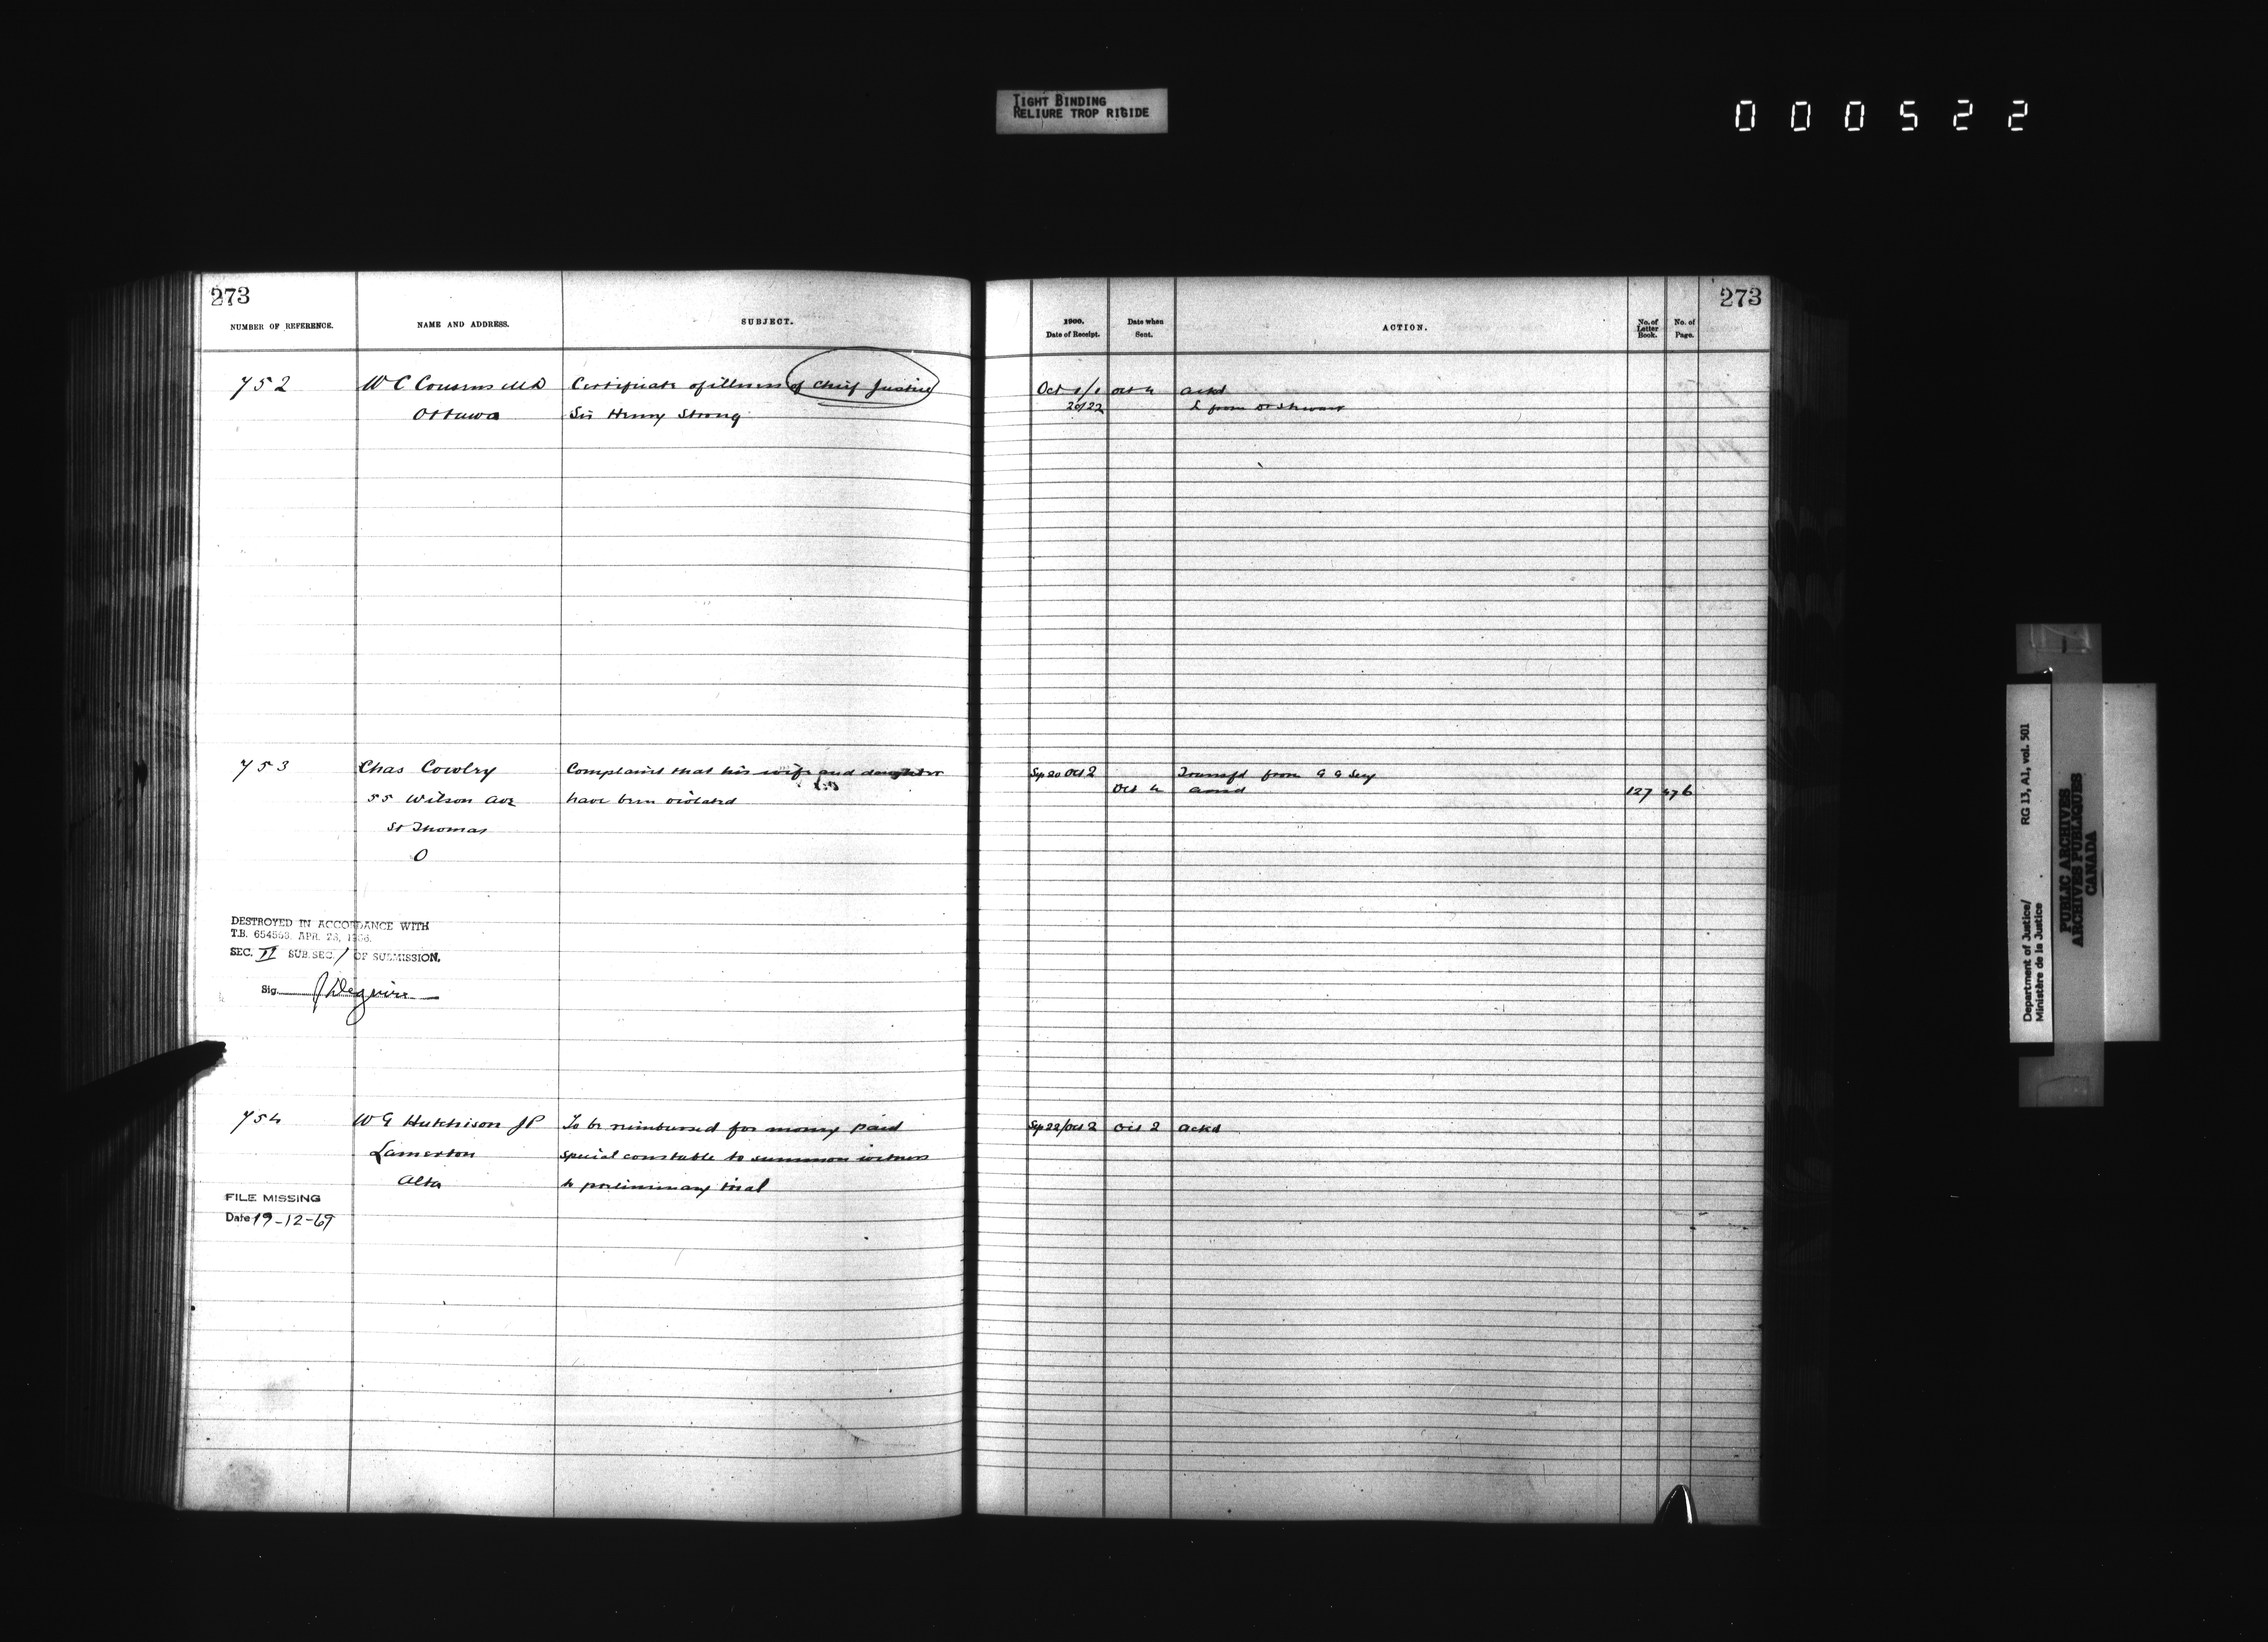 TIGHT BINDING
RELIURE TROP RIGIDE
000522
273
NUMBER OF REFERENCE.
NAME AND ADDRESS.
SUBJECT.
752
W C Cousens MD
Ottawa
Certificate of illness of Chief Justice
Sir Henry Strong
753
Chas Cowlry
55 Wilson Ave
St Thomas
O
Complains that his wife and daughter
have been violated
DESTROYED IN ACCORDANCE WITH
T.B. 654563. APR. 28, 1966.
SEC. II SUB.SEC. 1 OF SUBMISSION.
Sig.
754
W G Hutchison JP
Lamerton
Alta
To be reimbursed for money paid
special constable to summon witness
to preliminary trial
FILE MISSING
Date 19-12-69
273
1900.
Date of Receipt.
Date when
Sent.
ACTION.
No. of
Letter
Book.
No. of
Page.
Oct 1/1
Oct 4
ackd
20/22
L from Dr Stewart
Sep 20 Oct 2
Transfd from G G Secy
Oct 4
127 476
Sep 22/Oct 2
Oct 2
ackd
Department of Justice/
Ministère de la Justice
RG 13, A1, vol. 501
PUBLIC ARCHIVES
ARCHIVES PUBLIQUES
CANADA